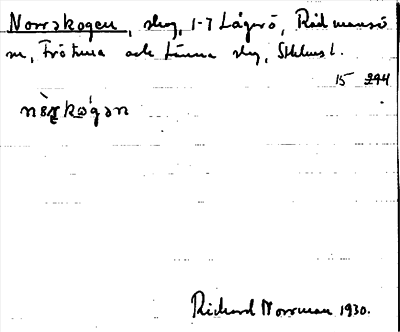 Norrskogen, skog, 1-7 Lågarö, Rådmansö
sn, Frötuna och Länna skg, Sthlms l.
15 294
nèrkógən
Richard Norrman 1930.